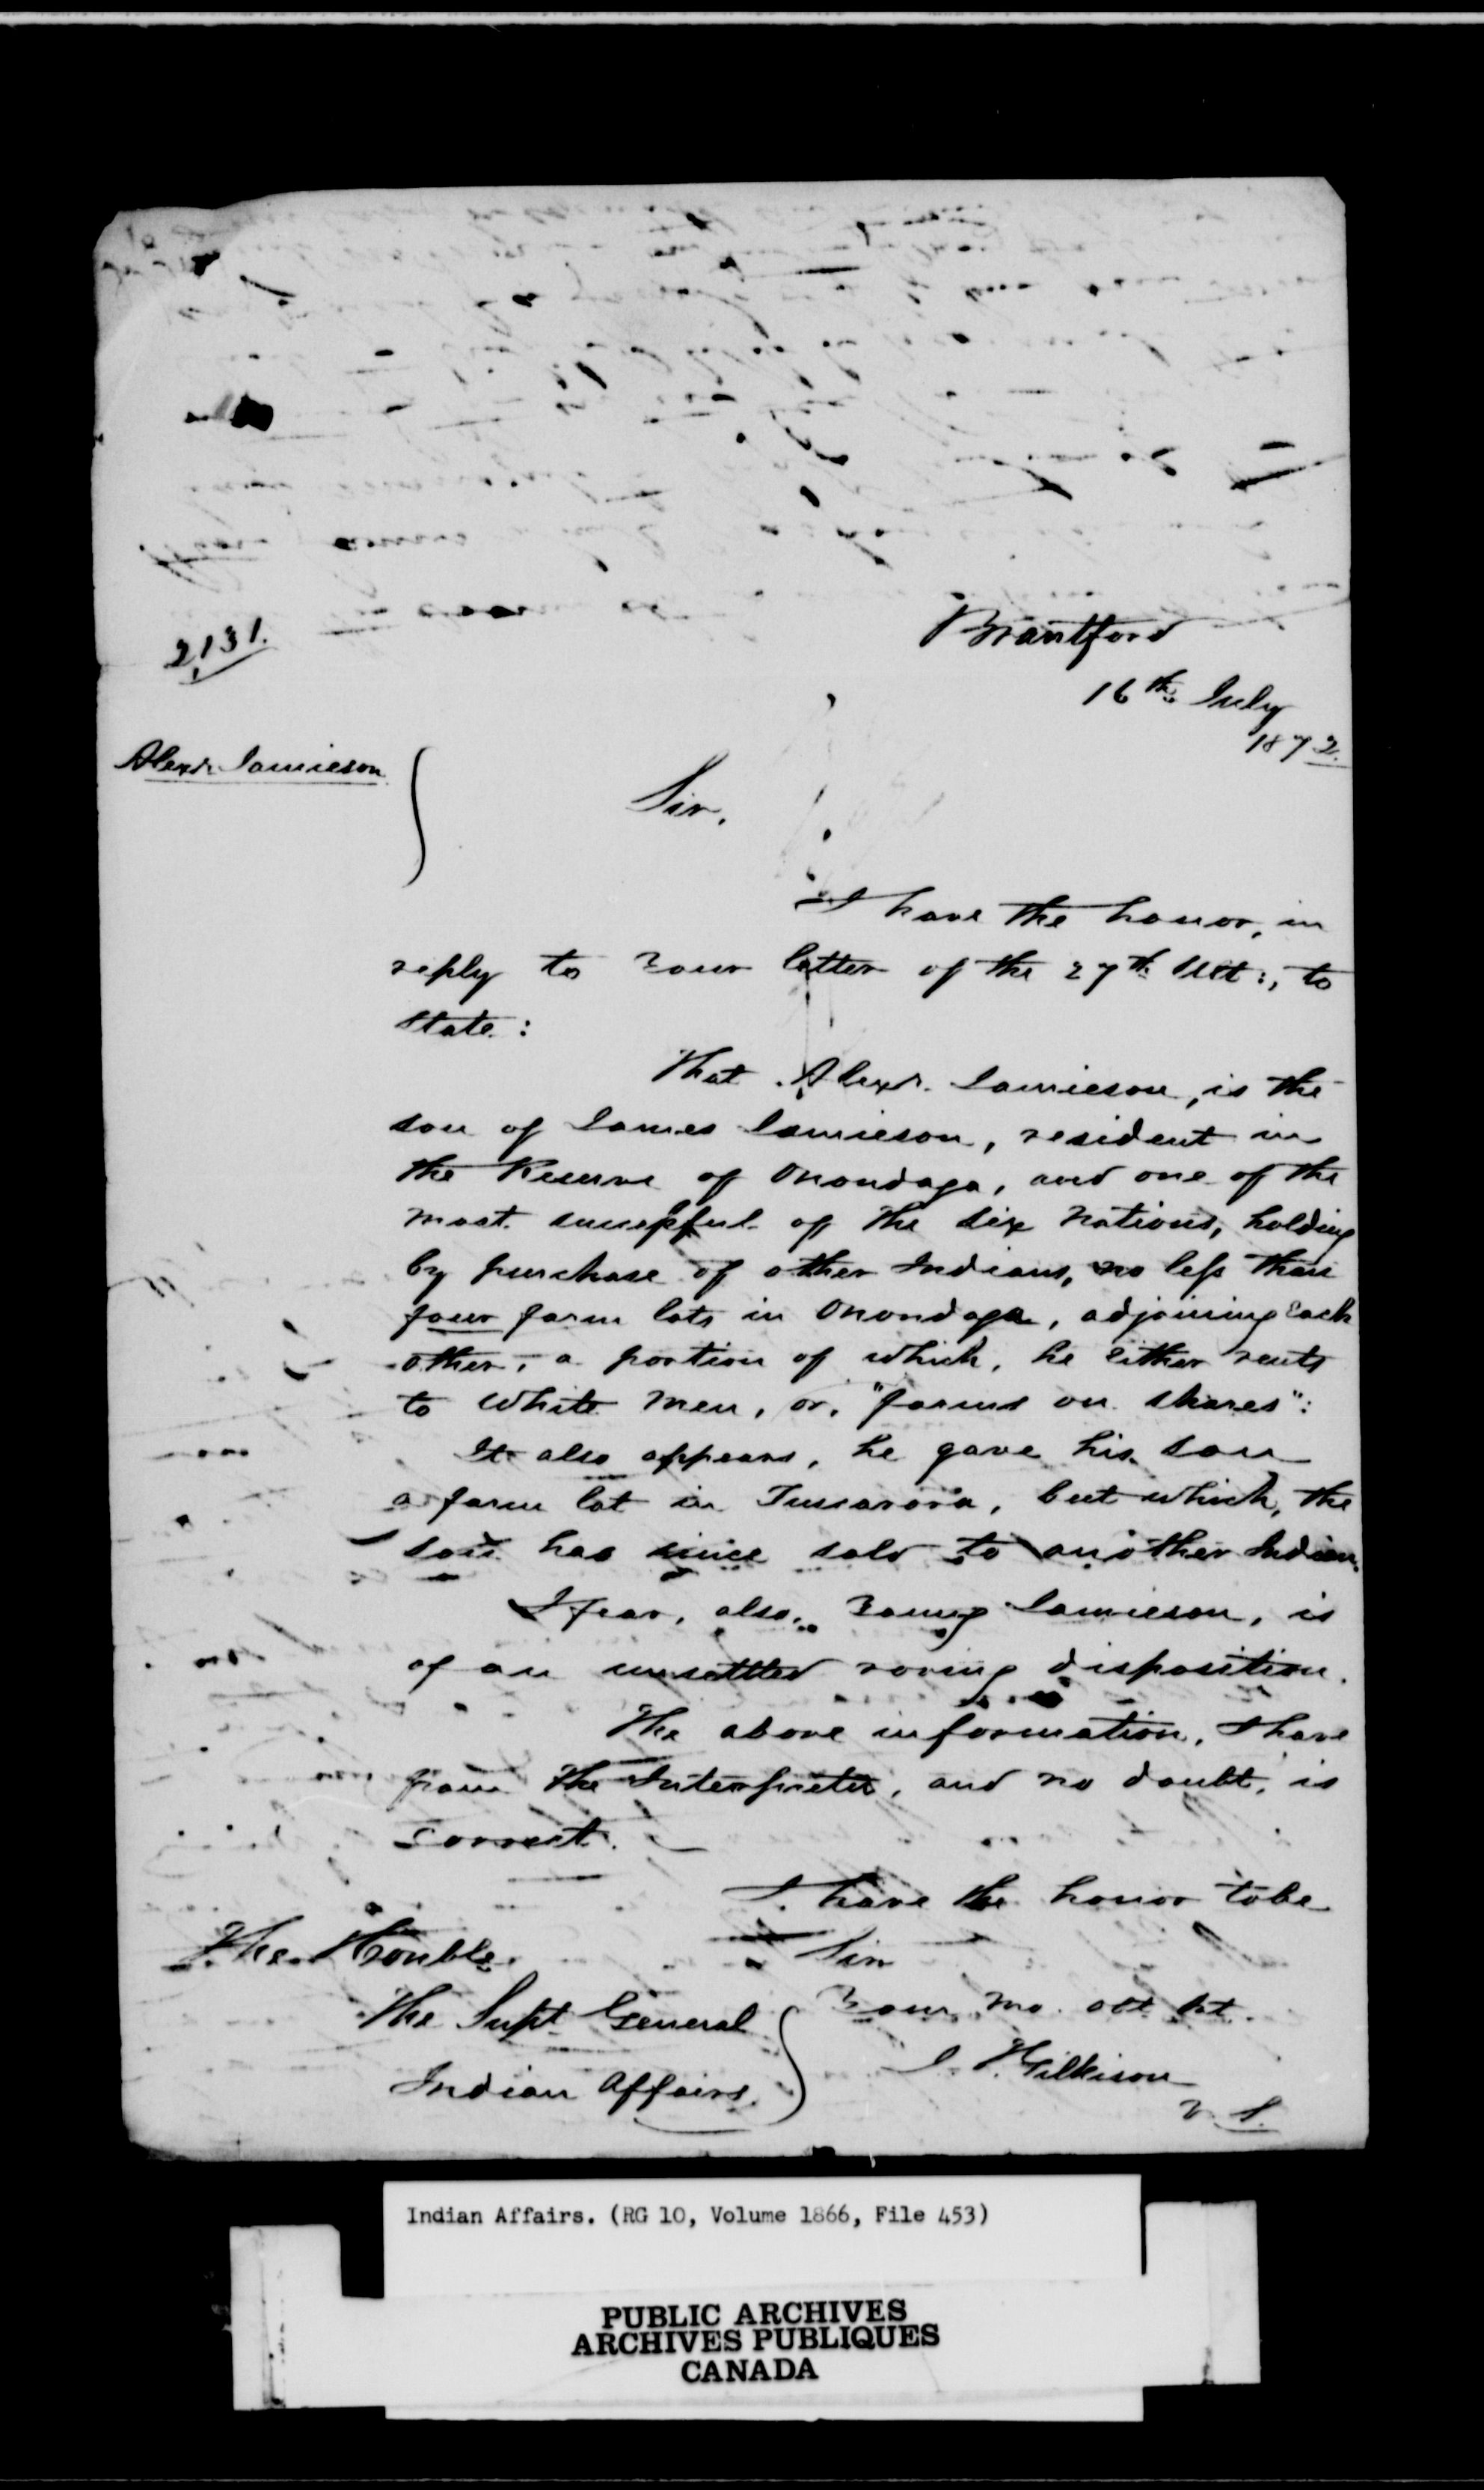 2131.
Brantford
16th July
1872.
Alexr. Jamieson
Sir,
I have the honor, in
reply to Your letter of the 27th Ult:, to
state:
That Alexr. Jamieson, is the
son of James Jamieson, resident in
the Reserve of Onondaga, and one of the
most successful of the Six Nations, holding
by purchase of other Indians, no less than
four farm lots in Onondaga, adjoining Each
other, a portion of which, he Either rents
to White Men, or, "farms on shares":
It also appears, he gave his son
a farm lot in Tuscarora, but which, the
son has since sold to another Indian.
I fear, also, Young Jamieson, is
of an unsettled roving disposition.
The above information, I have
from the Interpreter, and no doubt, is
correct.
I have the honor to be
Sir
The Honble.
The Supt General
Indian Affairs.
Your Mo. obt. st.
J. T. Gilkison
V. S.
Indian Affairs. (RG 10, Volume 1866, File 453)
PUBLIC ARCHIVES
ARCHIVES PUBLIQUES
CANADA